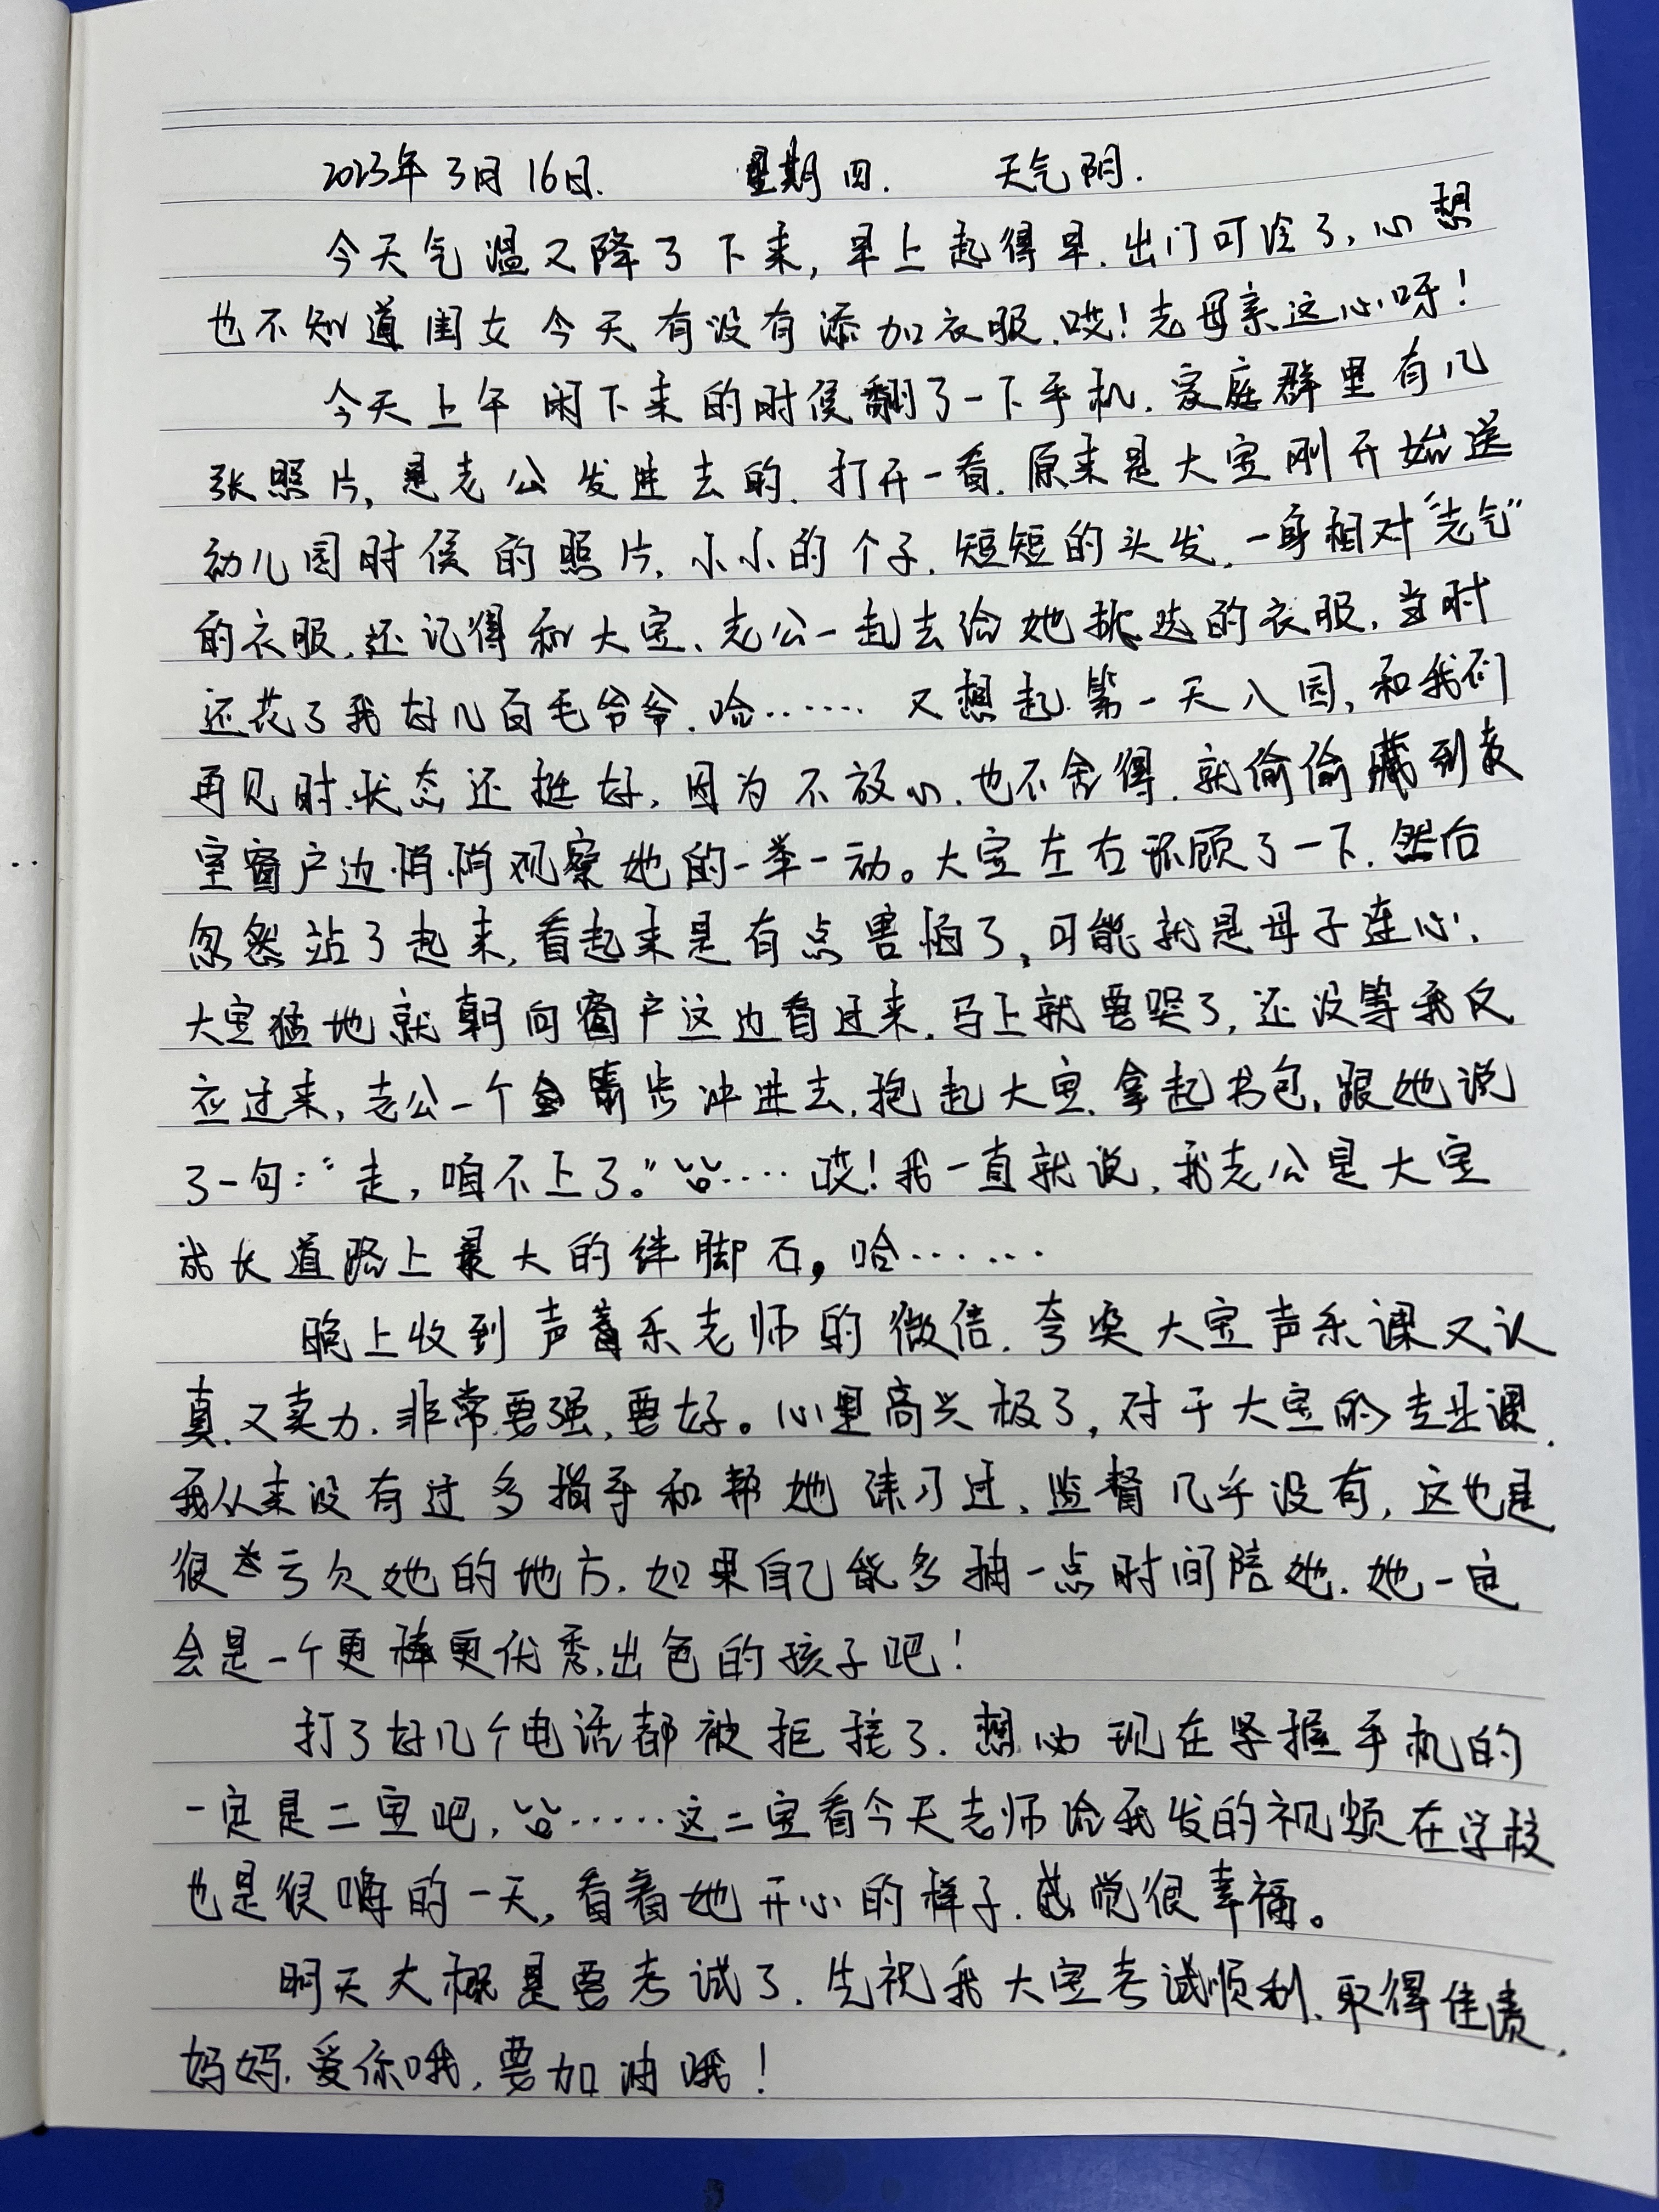 2023年3月16日. 星期四. 天气阴.
今天气温又降了下来,早上起得早.出门可冷了,心想
也不知道闺女今天有没有添加衣服.哎!老母亲这心呀!
今天上午闲下来的时候翻了一下手机.家庭群里有几
张照片,是老公发进去的.打开一看.原来是大宝刚开始送
幼儿园时候的照片.小小的个子.短短的头发.一身相对“老气”
的衣服.还记得和大宝、老公一起去给她挑选的衣服.当时
还花了我好几百毛爷爷.哈…… 又想起第一天入园,和我们
再见时状态还挺好,因为不放心.也不舍得.就偷偷藏到教
室窗户边悄悄观察她的一举一动。大宝左右环顾了一下.然后
忽然站了起来,看起来是有点害怕了,可能就是母子连心.
大宝猛地就朝向窗户这边看过来.马上就要哭了,还没等我反
应过来,老公一个箭步冲进去.抱起大宝.拿起书包,跟她说
了一句:“走,咱不上了。”哈…… 哎!我一直就说,我老公是大宝
成长道路上最大的绊脚石,哈……
晚上收到声乐老师的微信.夸奖大宝声乐课又认
真又卖力.非常要强,要好。心里高兴极了,对于大宝的专业课.
我从来没有过多指导和帮她练习过,监督几乎没有,这也是
很亏欠她的地方.如果自己能多抽一点时间陪她.她一定
会是一个更棒更优秀.出色的孩子吧!
打了好几个电话都被拒接了.想必现在掌握手机的
一定是二宝吧,哈……这二宝看今天老师给我发的视频在学校
也是很嗨的一天,看着她开心的样子.感觉很幸福。
明天大概是要考试了.先祝我大宝考试顺利.取得佳绩,
妈妈爱你哦,要加油哦!